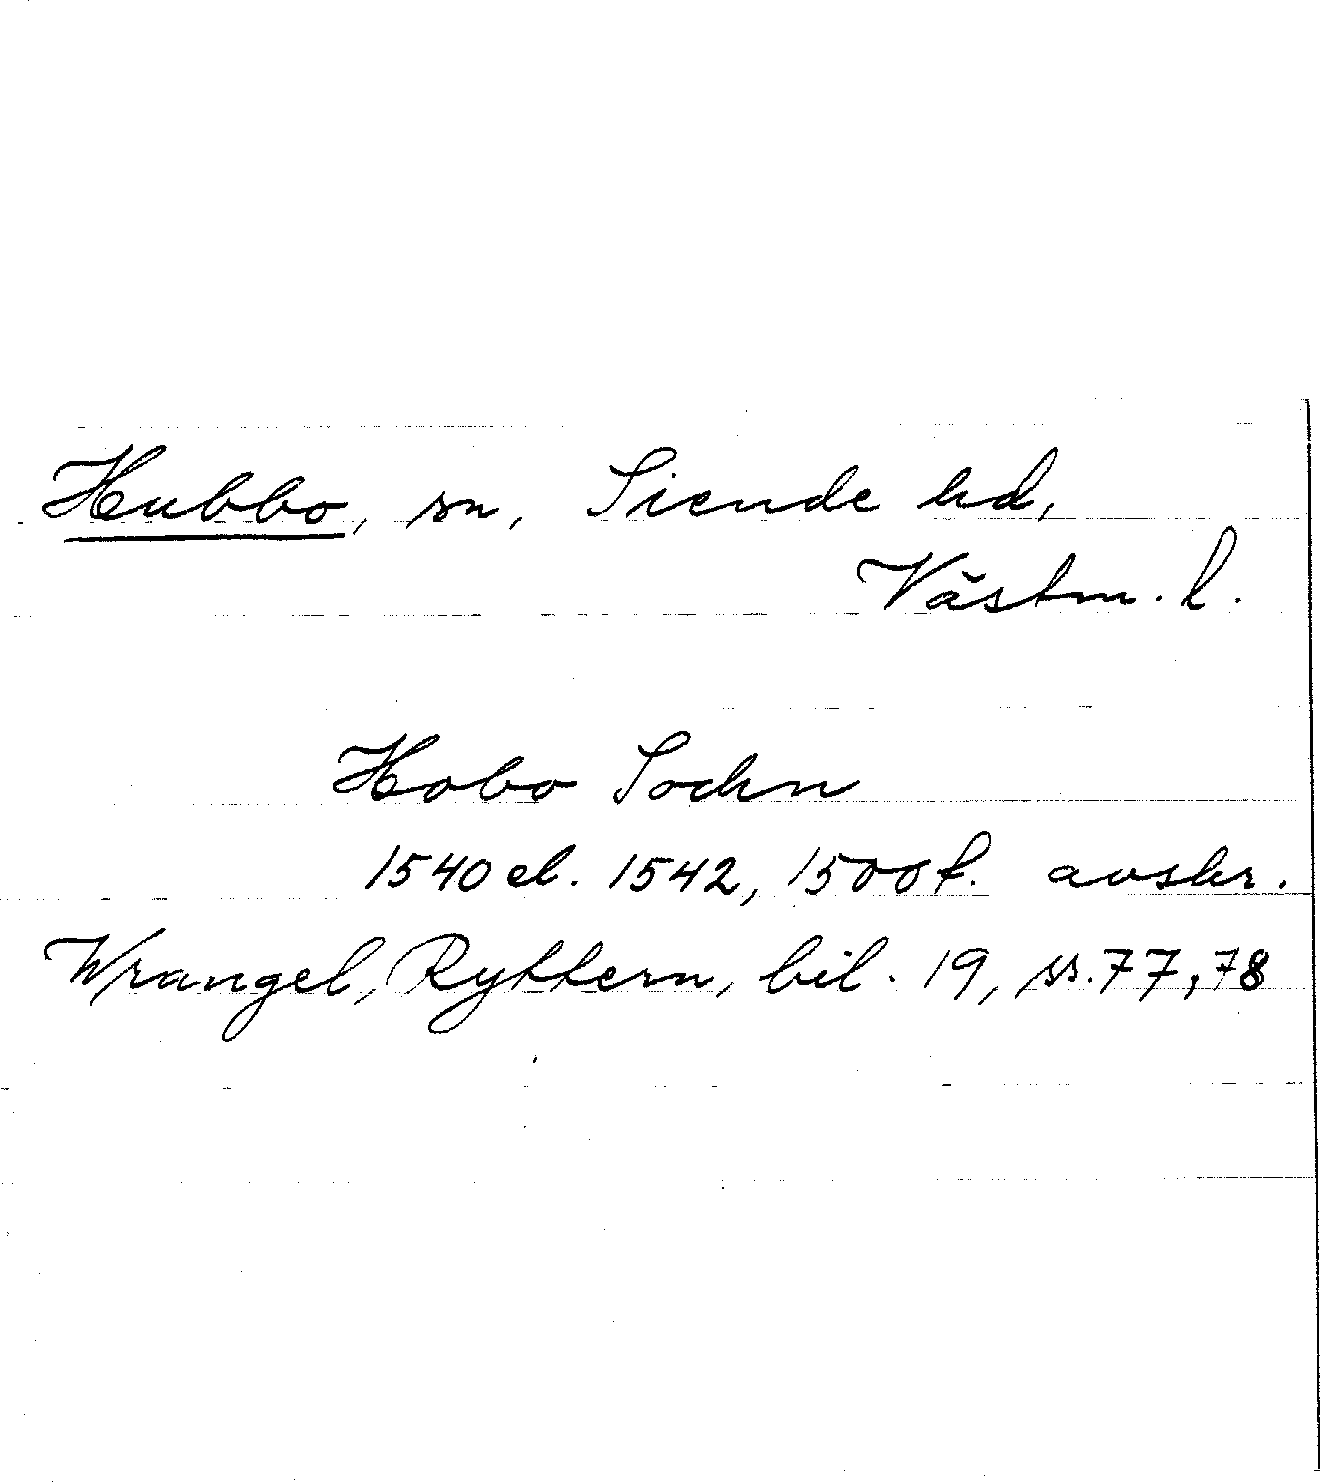 Hubbo, sn, Siende hd,
Västm. l.
Hobo Sochn
1540 el. 1542, 1500 t. avskr.
Wrangel, Ryttern, bil. 19, ss. 77, 78